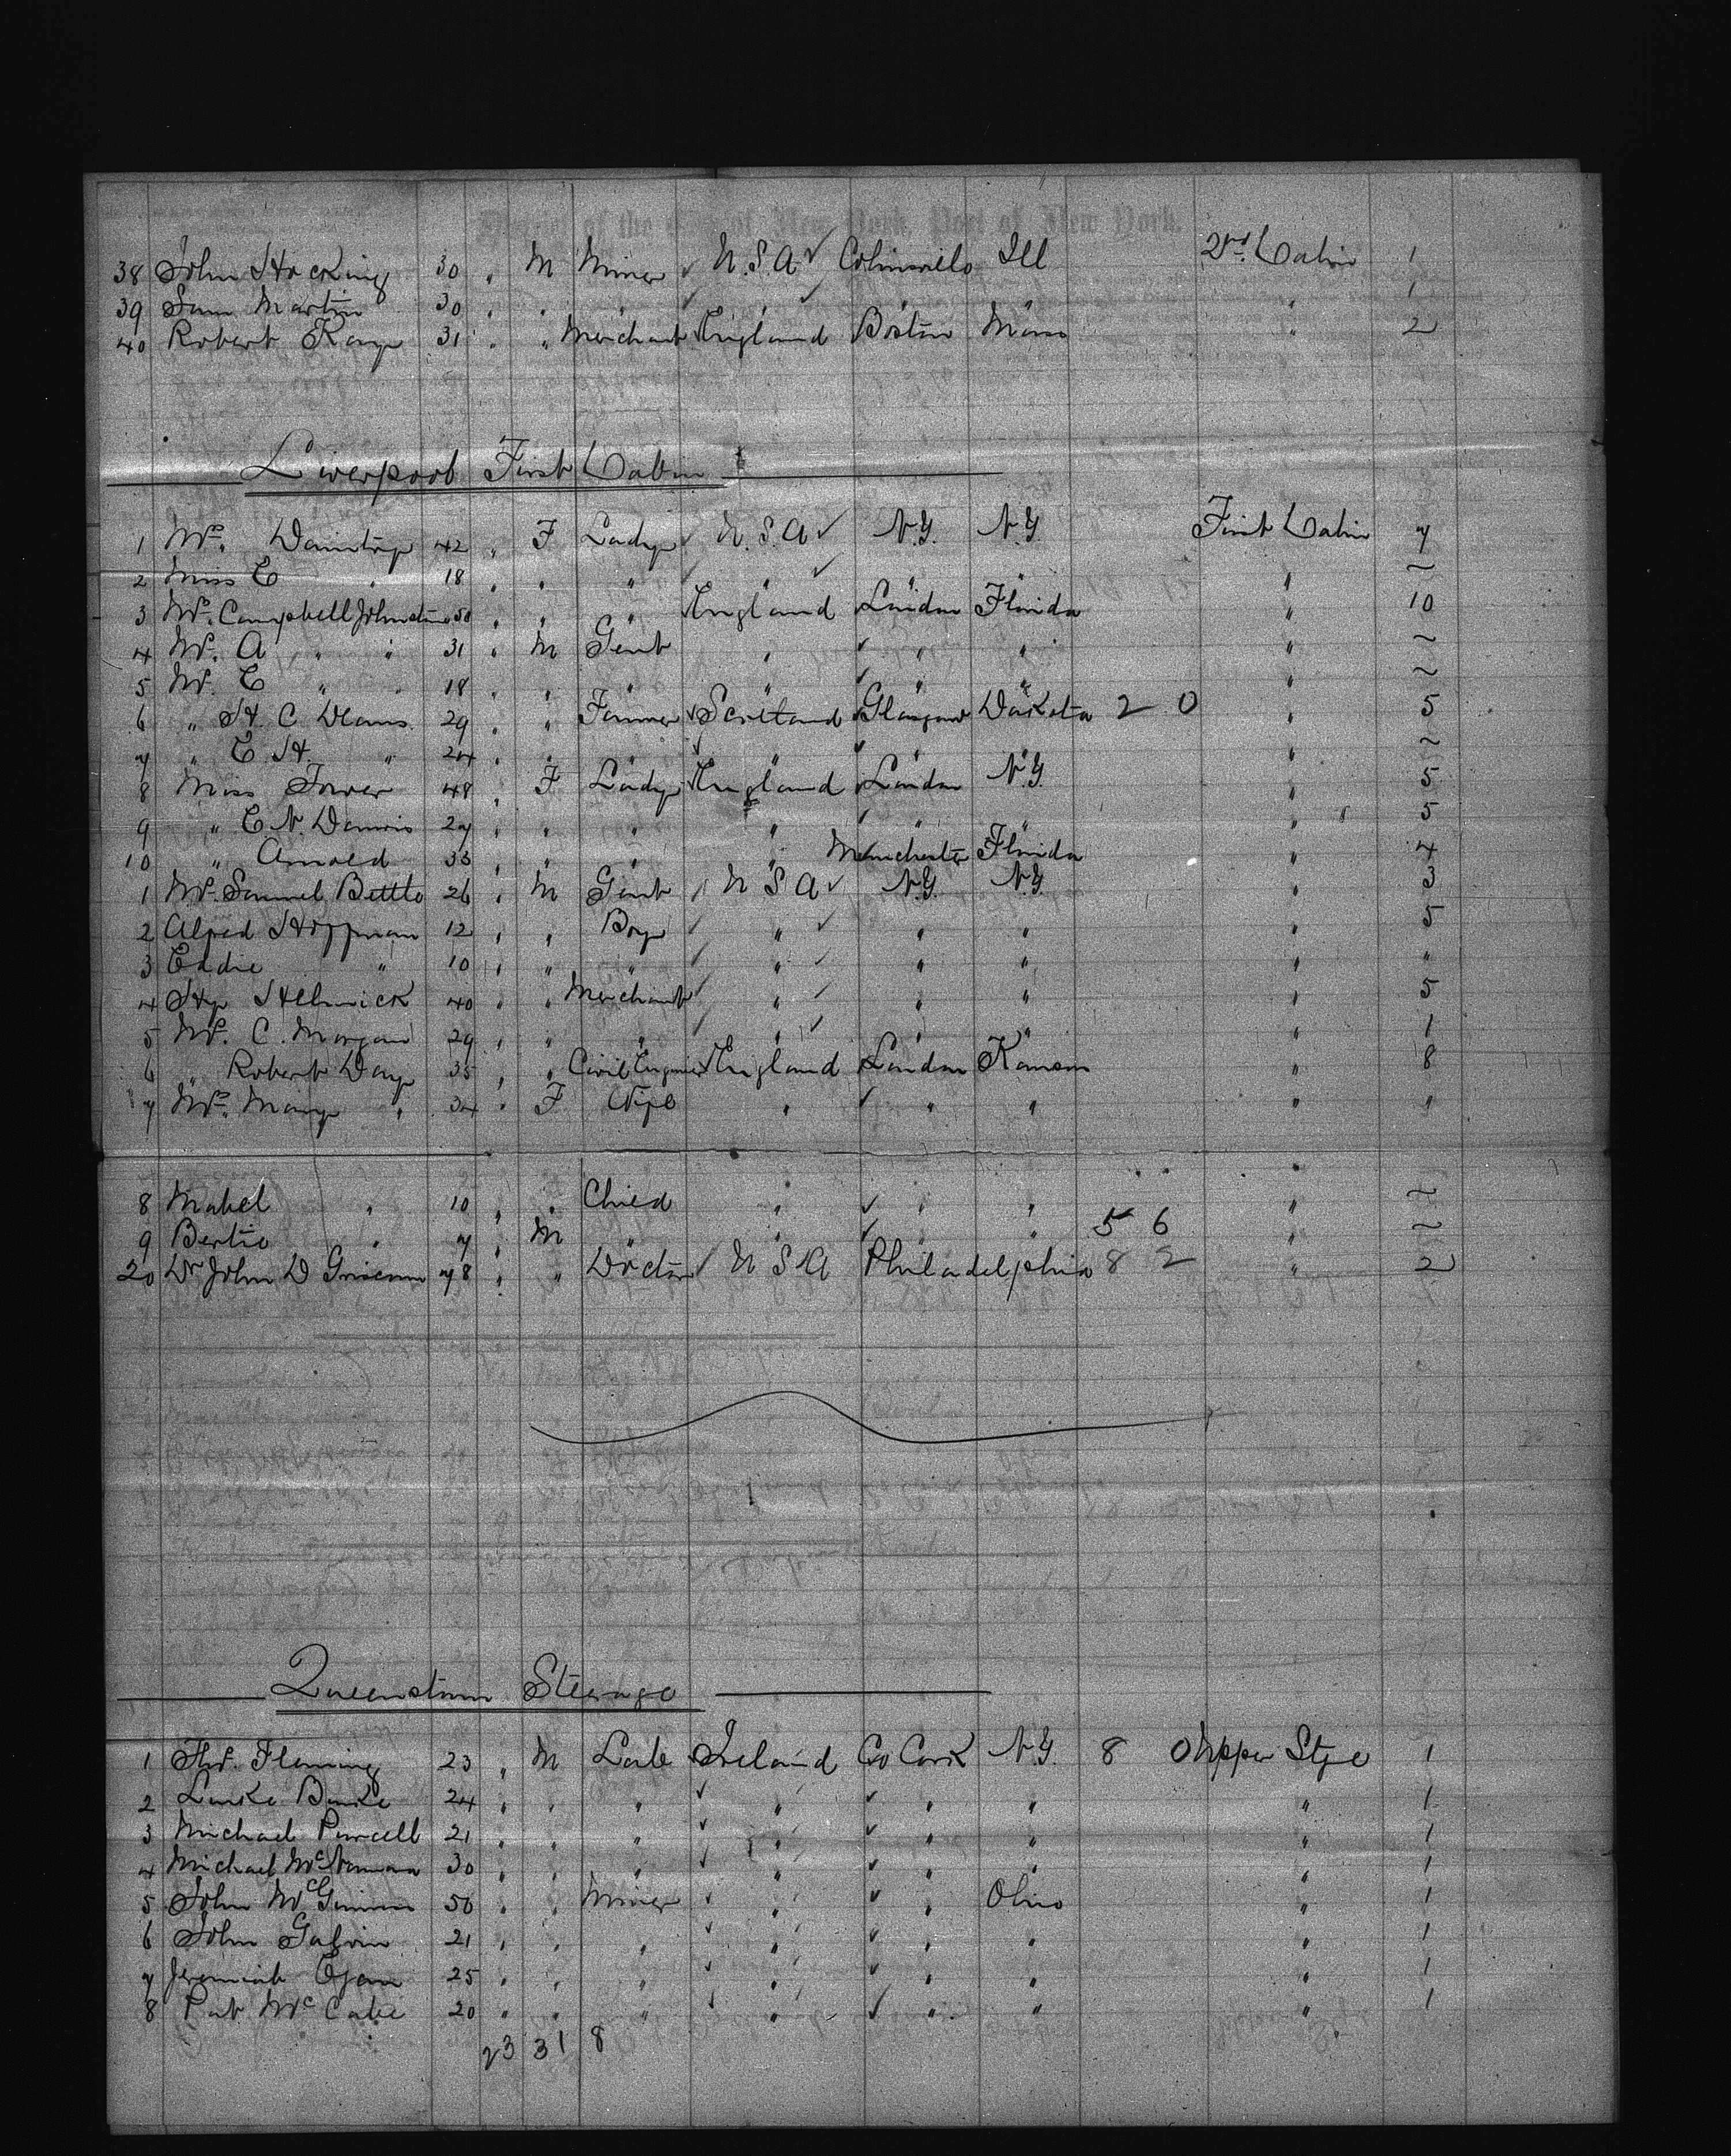 District of the City of New York, Port of New York.
38 John Hocking 30 " M Miner U.S.A Colinsville Ill 2nd Cabin 1
39 Sam Martin 30 " " " " " " " 1
40 Robert Kaye 31 " " Merchant England Boston Mass " 2
Liverpool First Cabin
1 Mrs. 42 " F Lady U.S.A N.Y. N.Y. First Cabin 7
2 Miss E " 18 " " " " " " " ~
3 Mrs. Campbell Johnston 50 " " " England London Florida " 10
4 Mr. A " " 31 " M Gent " " " " ~
5 Mr. E " " 18 " " " " " " " ~
6 " H. C Deans 29 " " Farmer Scotland Glasgow Dakota 2 0 " 5
7 " E H. " 24 " " " " " " " ~
8 Miss Tower 48 " F Lady England London N.Y. " 5
9 " E. N. 27 " " " " " " " 5
10 " Arnold 33 " " " " Manchester Florida " 4
1 Mr. Samuel Bettle 26 " M Gent U S A N.Y. N.Y. " 3
2 Alfred Hoffman 12 " " Boy " " " " 5
3 Eddie " 10 " " " " " " " "
4 Hy Helmick 40 " " Merchant " " " " 5
5 Mr. C. Morgan 29 " " " " " " " 1
6 " Robert Day 35 " " Civil Engineer England London Kansas " 8
7 Mrs. Mary " 34 " F Wife " " " " "
8 Mabel " 10 " " Child " " " " ~
9 Bertie " 7 " M " " " " 5 6 " ~
20 Dr John D Griscom 78 " " Doctor U S A Philadelphia 8 2 " 2
Queenstown Steerage
1 Thos. Fleming 23 " M Lab Ireland Co Cork N.Y. 8 0 Upper Stge 1
2 Luke Burke 24 " " " " " " " 1
3 Michael Purcell 21 " " " " " " " 1
4 Michael McNamara 30 " " " " " " " 1
5 John McGinnis 50 " " Miner " " Ohio " 1
6 John Galvin 21 " " " " " " " 1
7 Jeremiah Egan 25 " " " " " " " 1
8 Pat McCabe 20 " " " " " " " 1
23 31 8